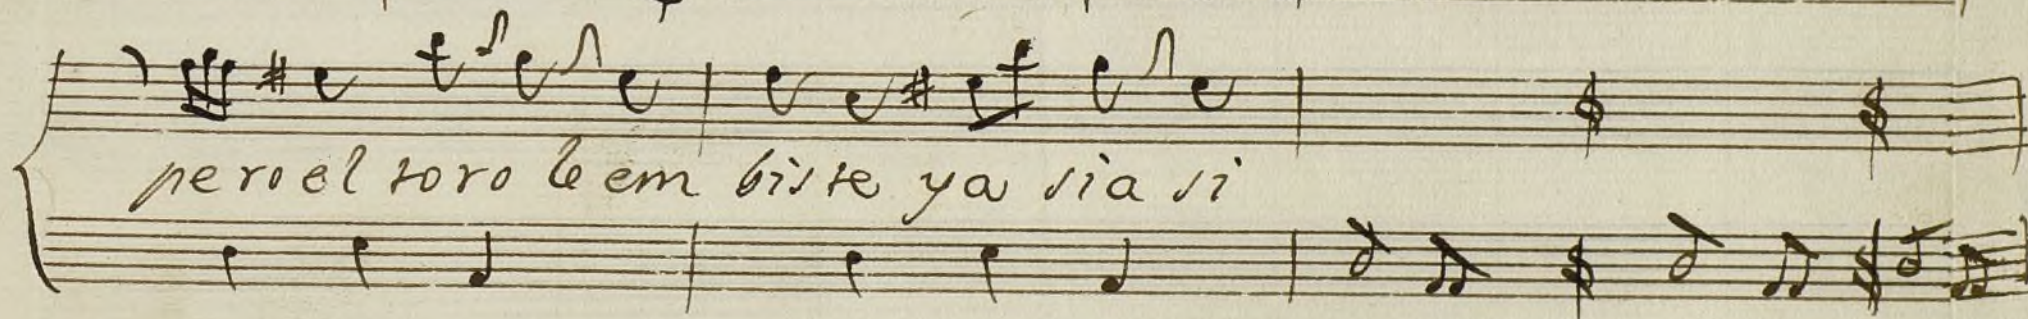 pero el toro le em biste ya sia si